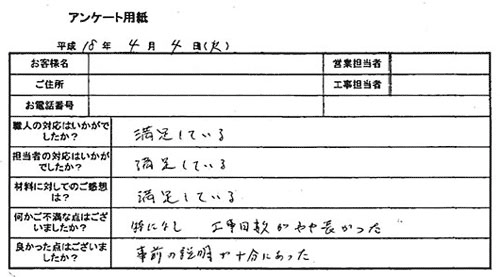 アンケート用紙
平成 18 年 4 月 4 日(火)
お客様名 営業担当者
ご住所 工事担当者
お電話番号
職人の対応はいかがで
したか？
満足している
担当者の対応はいかが
でしたか？
満足している
材料に対してのご感想
は？
満足している
何かご不満な点はござ
いましたか？
特になし 工事日数がやや長かった
良かった点はございま
したか？
事前の説明が十分にあった